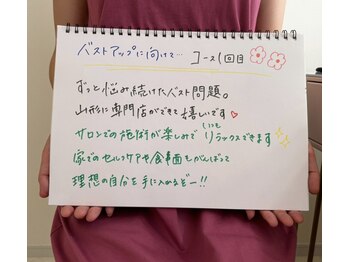 バストアップに向けて… コース1回目
ずっと悩み続けたバスト問題。
山形に専門店ができて嬉しいです♥
サロンでの施術が楽しみでいつもリラックスできます
家でのセルフケアや食事面もがんばって
理想の自分を手に入れるぞー!!